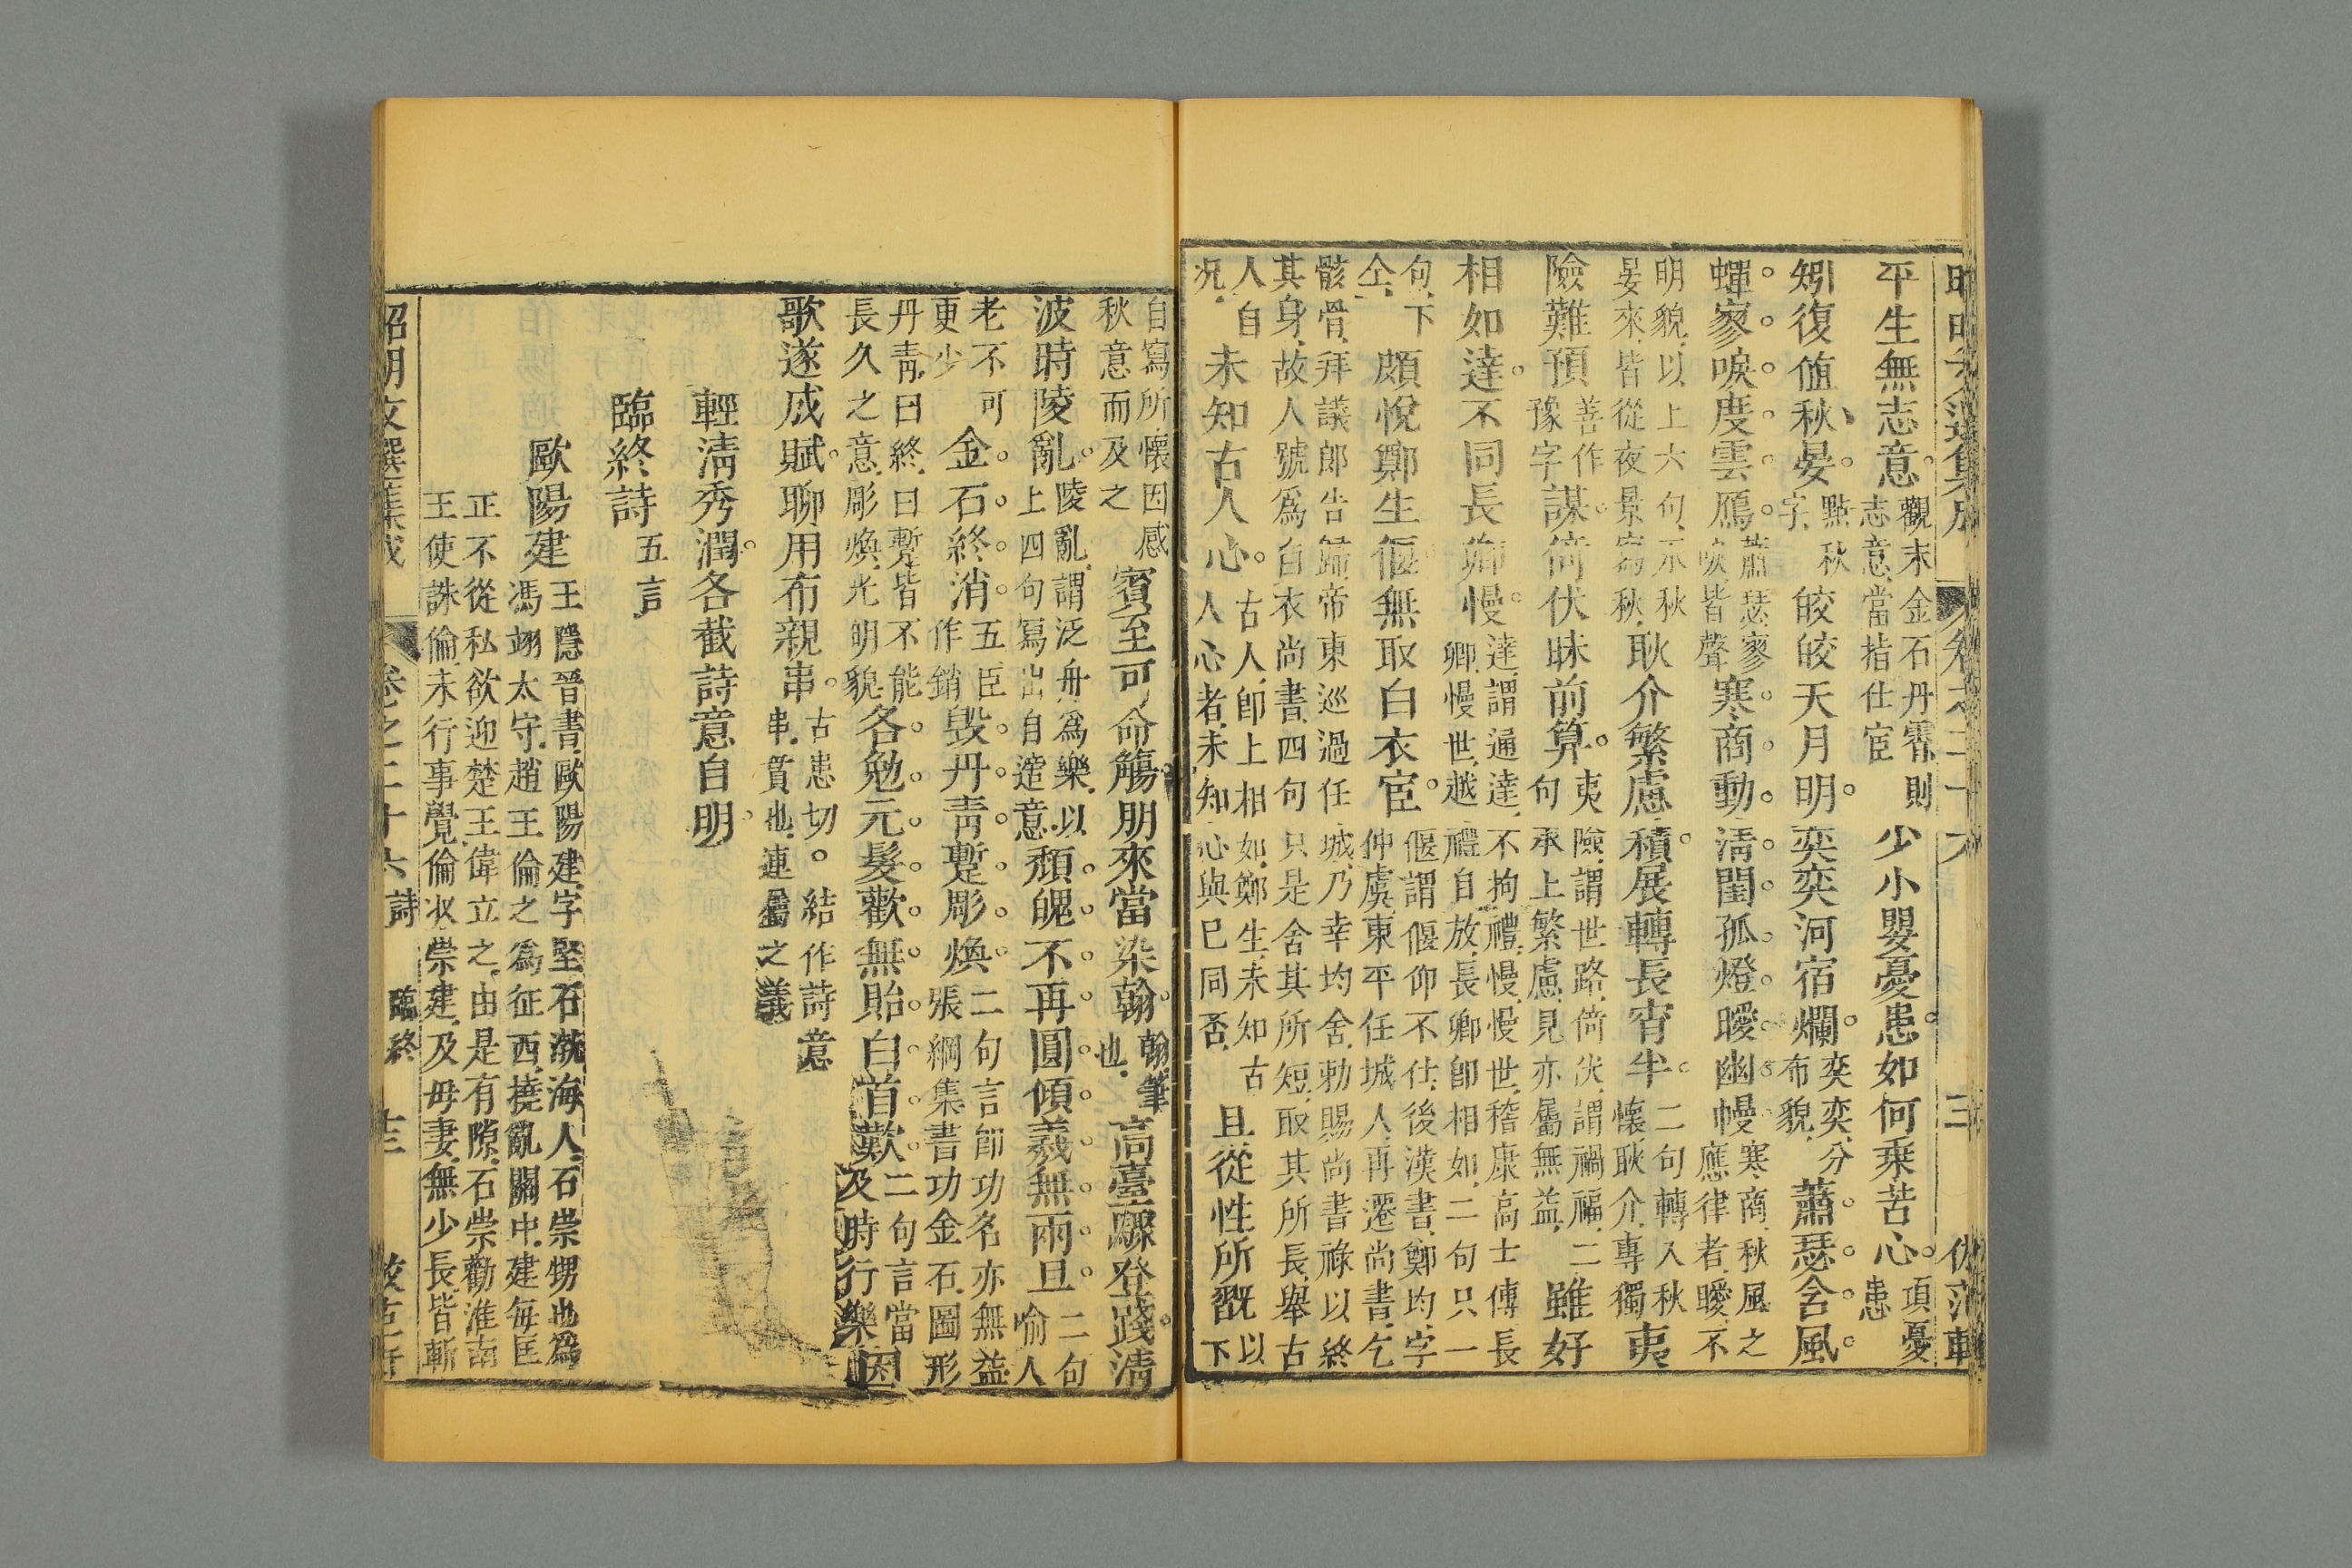 平生無志意觀末志意當指仕宦金石丹霄則少小嬰憂患如何乗苦心項憂患
矧復値秋晏點秋字皎皎天月明奕奕河宿爛奕奕分布貌蕭瑟含風
蟬寥唳度雲鴈蕭瑟寥唳皆聲寒商動清閨孤燈曖幽幔寒商秋風之應律者曖不
明貌以上六句示秋晏來皆從夜景寫秋耿介繁慮積展轉長宵半二句轉入秋懷耿介專獨夷
險難預善作豫字謀倚伏昧前算夷險謂世路倚伏謂禍福二句承上繁慮見亦屬無益雖好
相如達不同長卿慢達謂通達不拘禮慢慢世嵇康高士傳長卿慢世越禮自放長卿即相如二句只一
句下仝頗悅鄭生偃無取白衣宦偃謂偃仰不仕後漢書鄭均字仲虞東平任城人再遷尚書乞
骸骨拜議郎告歸帝東巡過任城乃幸均舍勅賜尚書祿以終其身故人號爲白衣尚書四句只是舍其所短取其所長舉古
人自况未知古人心古人即上相如鄭生未知古人心者未知心與已同否且從性所翫以下
自寫所懷因感秋意而及之賓至可命觴朋來當染翰翰筆也高臺驟登踐清
波時陵亂陵亂謂泛舟爲樂以上四句寫出自遣意頹魄不再圓傾羲無兩旦二句喻人
老不可更少金石終消五臣作銷毀丹青暫彫煥二句言即功名亦無益張綱集書功金石圖形
丹青曰終曰暫皆不能長久之意彫煥光明貌各勉元髮歡無貽白首歎二句言當及時行樂因
歌遂成賦聊用布親串古患切。結作詩意串貫也連屬之義
輕清秀潤各截詩意自明
臨終詩五言
歐陽建王隱晉書歐陽建字堅石渤海人石崇甥也爲馮翊太守趙王倫之爲征西撓亂關中建每匡
正不從私欲迎楚王偉立之由是有隙石崇勸淮南王使誅倫未行事覺倫收崇建及毋妻無少長皆斬
昭明文選集成 卷之二十六 詩 臨終